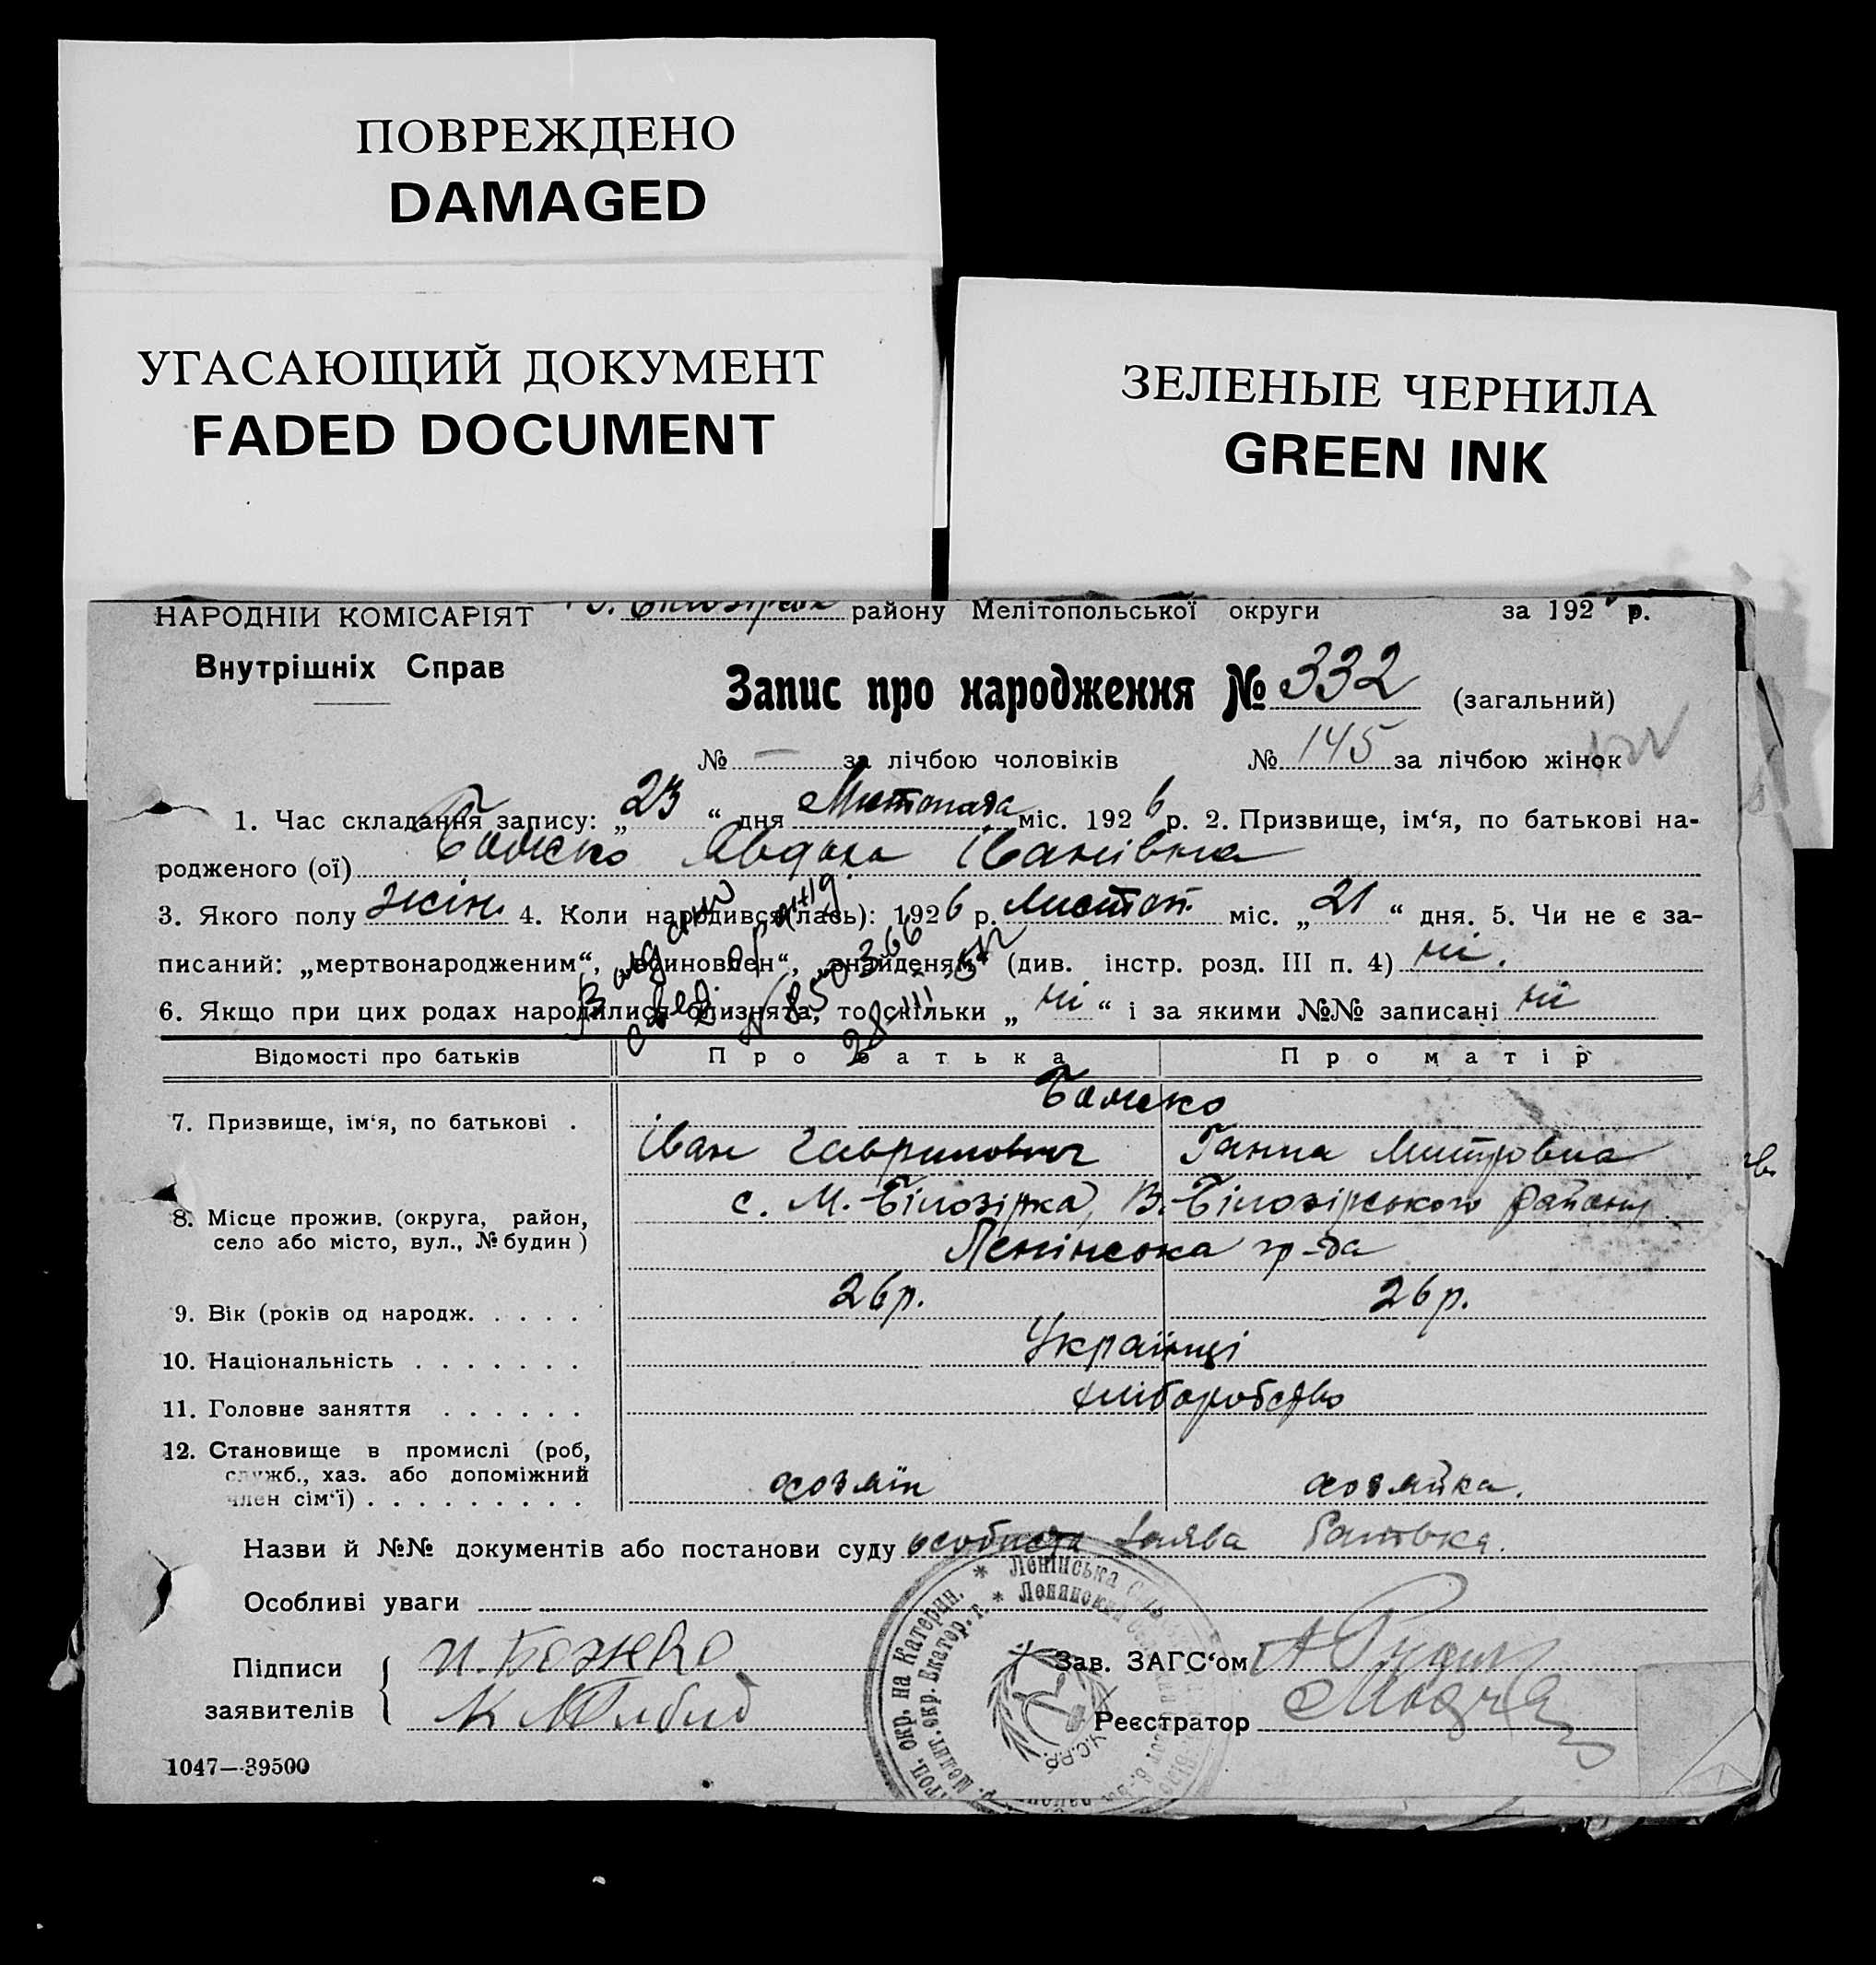 ПОВРЕЖДЕНО
DAMAGED
УГАСАЮЩИЙ ДОКУМЕНТ
FADED DOCUMENT
ЗЕЛЕНЫЕ ЧЕРНИЛА
GREEN INK
НАРОДНІЙ КОМІСАРІЯТ району Мелітопольської округи за 192 р.
Внутрішніх Справ
Запис про народження № 332 (загальний)
№ — за лічбою чоловіків № 145 за лічбою жінок
1. Час складання запису: „23“ дня Листопада міс. 1926 р. 2. Призвище, ім‘я, по батькові на-
родженого (ої) Іванівна
3. Якого полу жін. 4. Коли народився(лась): 1926 р. Листоп. міс. „21“ дня. 5. Чи не є за-
писаний: „мертвонародженим“, „всиновлен“, „знайденям“ (див. інстр. розд. III п. 4) ні.
6. Якщо при цих родах народилися близнята, то скільки „ні“ і за якими №№ записані ні
Відомості про батьків Про батька Про матір
7. Призвище, ім‘я, по батькові .
Іван Гаврилович Ганна Митровна
8. Місце прожив. (округа, район, с. М. Білозірка, В. Білозірського району
село або місто, вул., № будин) Ленінська гр-да
9. Вік (років од народж. . . . . 26 р. 26 р.
10. Національність . . . . . . . Українці
11. Головне заняття . . . . . . хліборобство
12. Становище в промислі (роб,
служб., хаз. або допоміжний
член сім‘ї) . . . . . . . . . хозяїн хозяйка.
Назви й №№ документів або постанови суду особиста заява батька.
Особливі уваги
Підписи
заявителів
Зав. ЗАГС‘ом
Реєстратор
У.С.Р.Р.
1047—39500